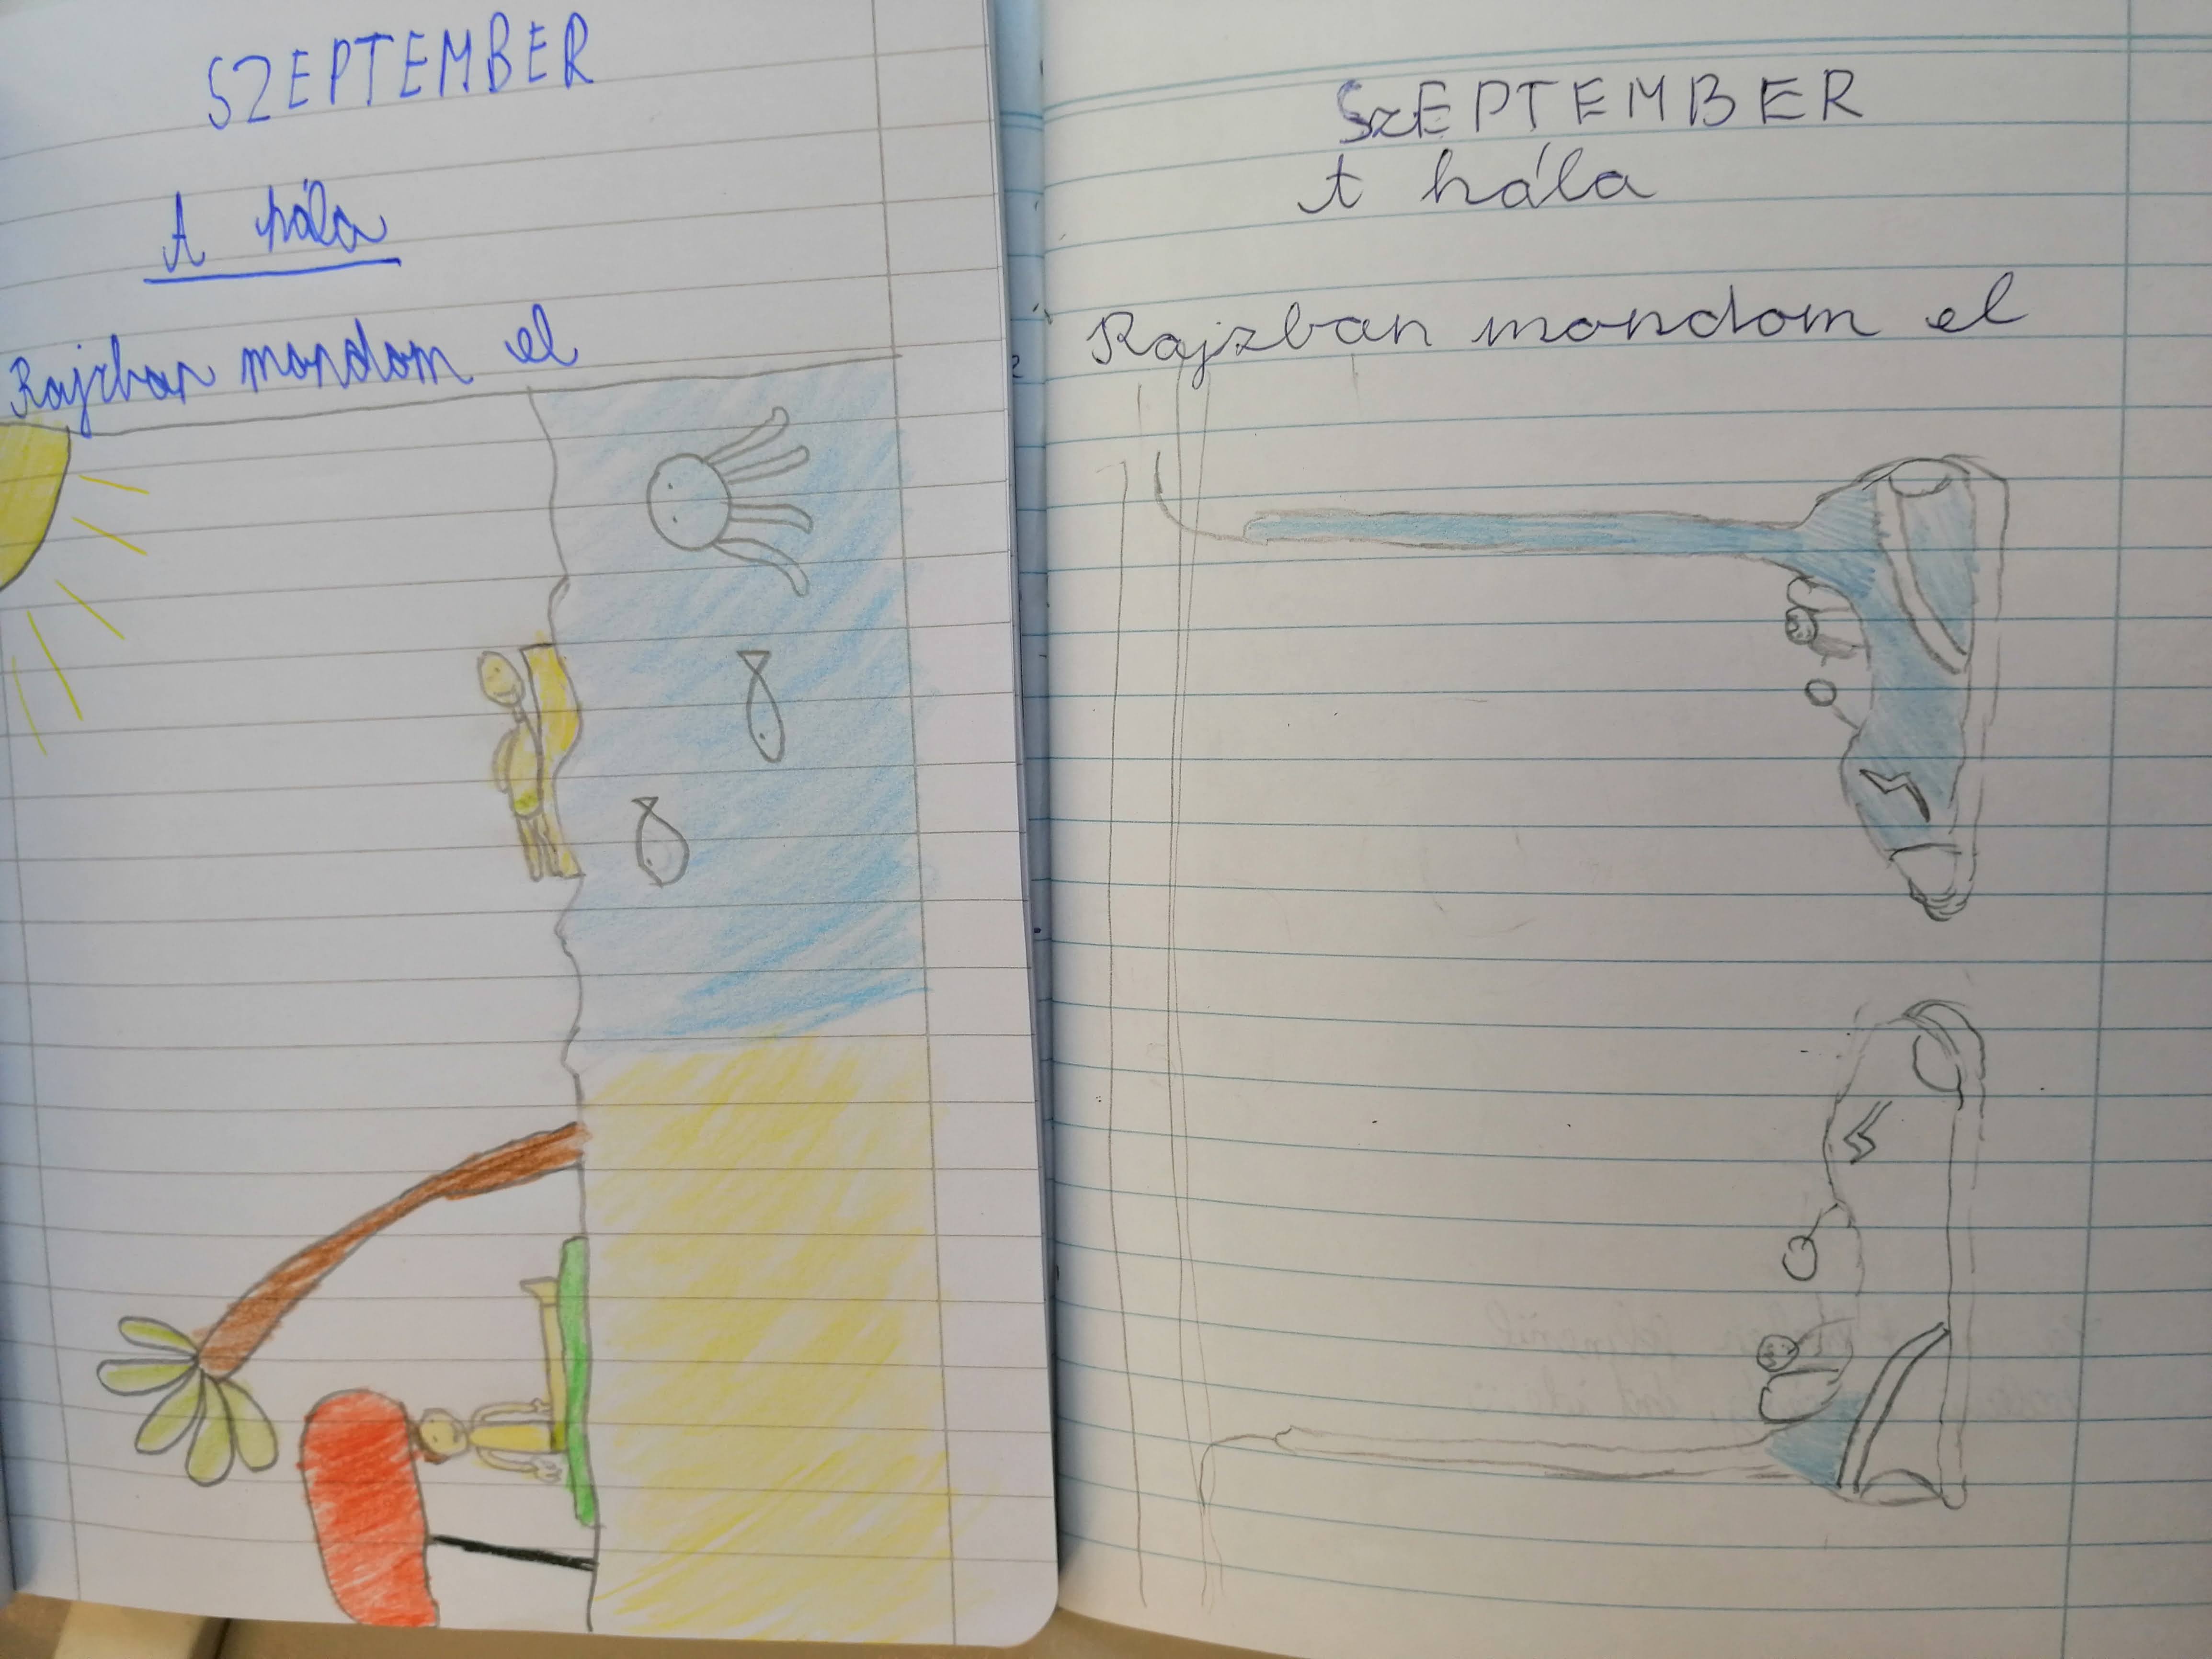 SZEPTEMBER
A hála
Rajzban mondom el
SzEPTEMBER
A hála
Rajzban mondom el